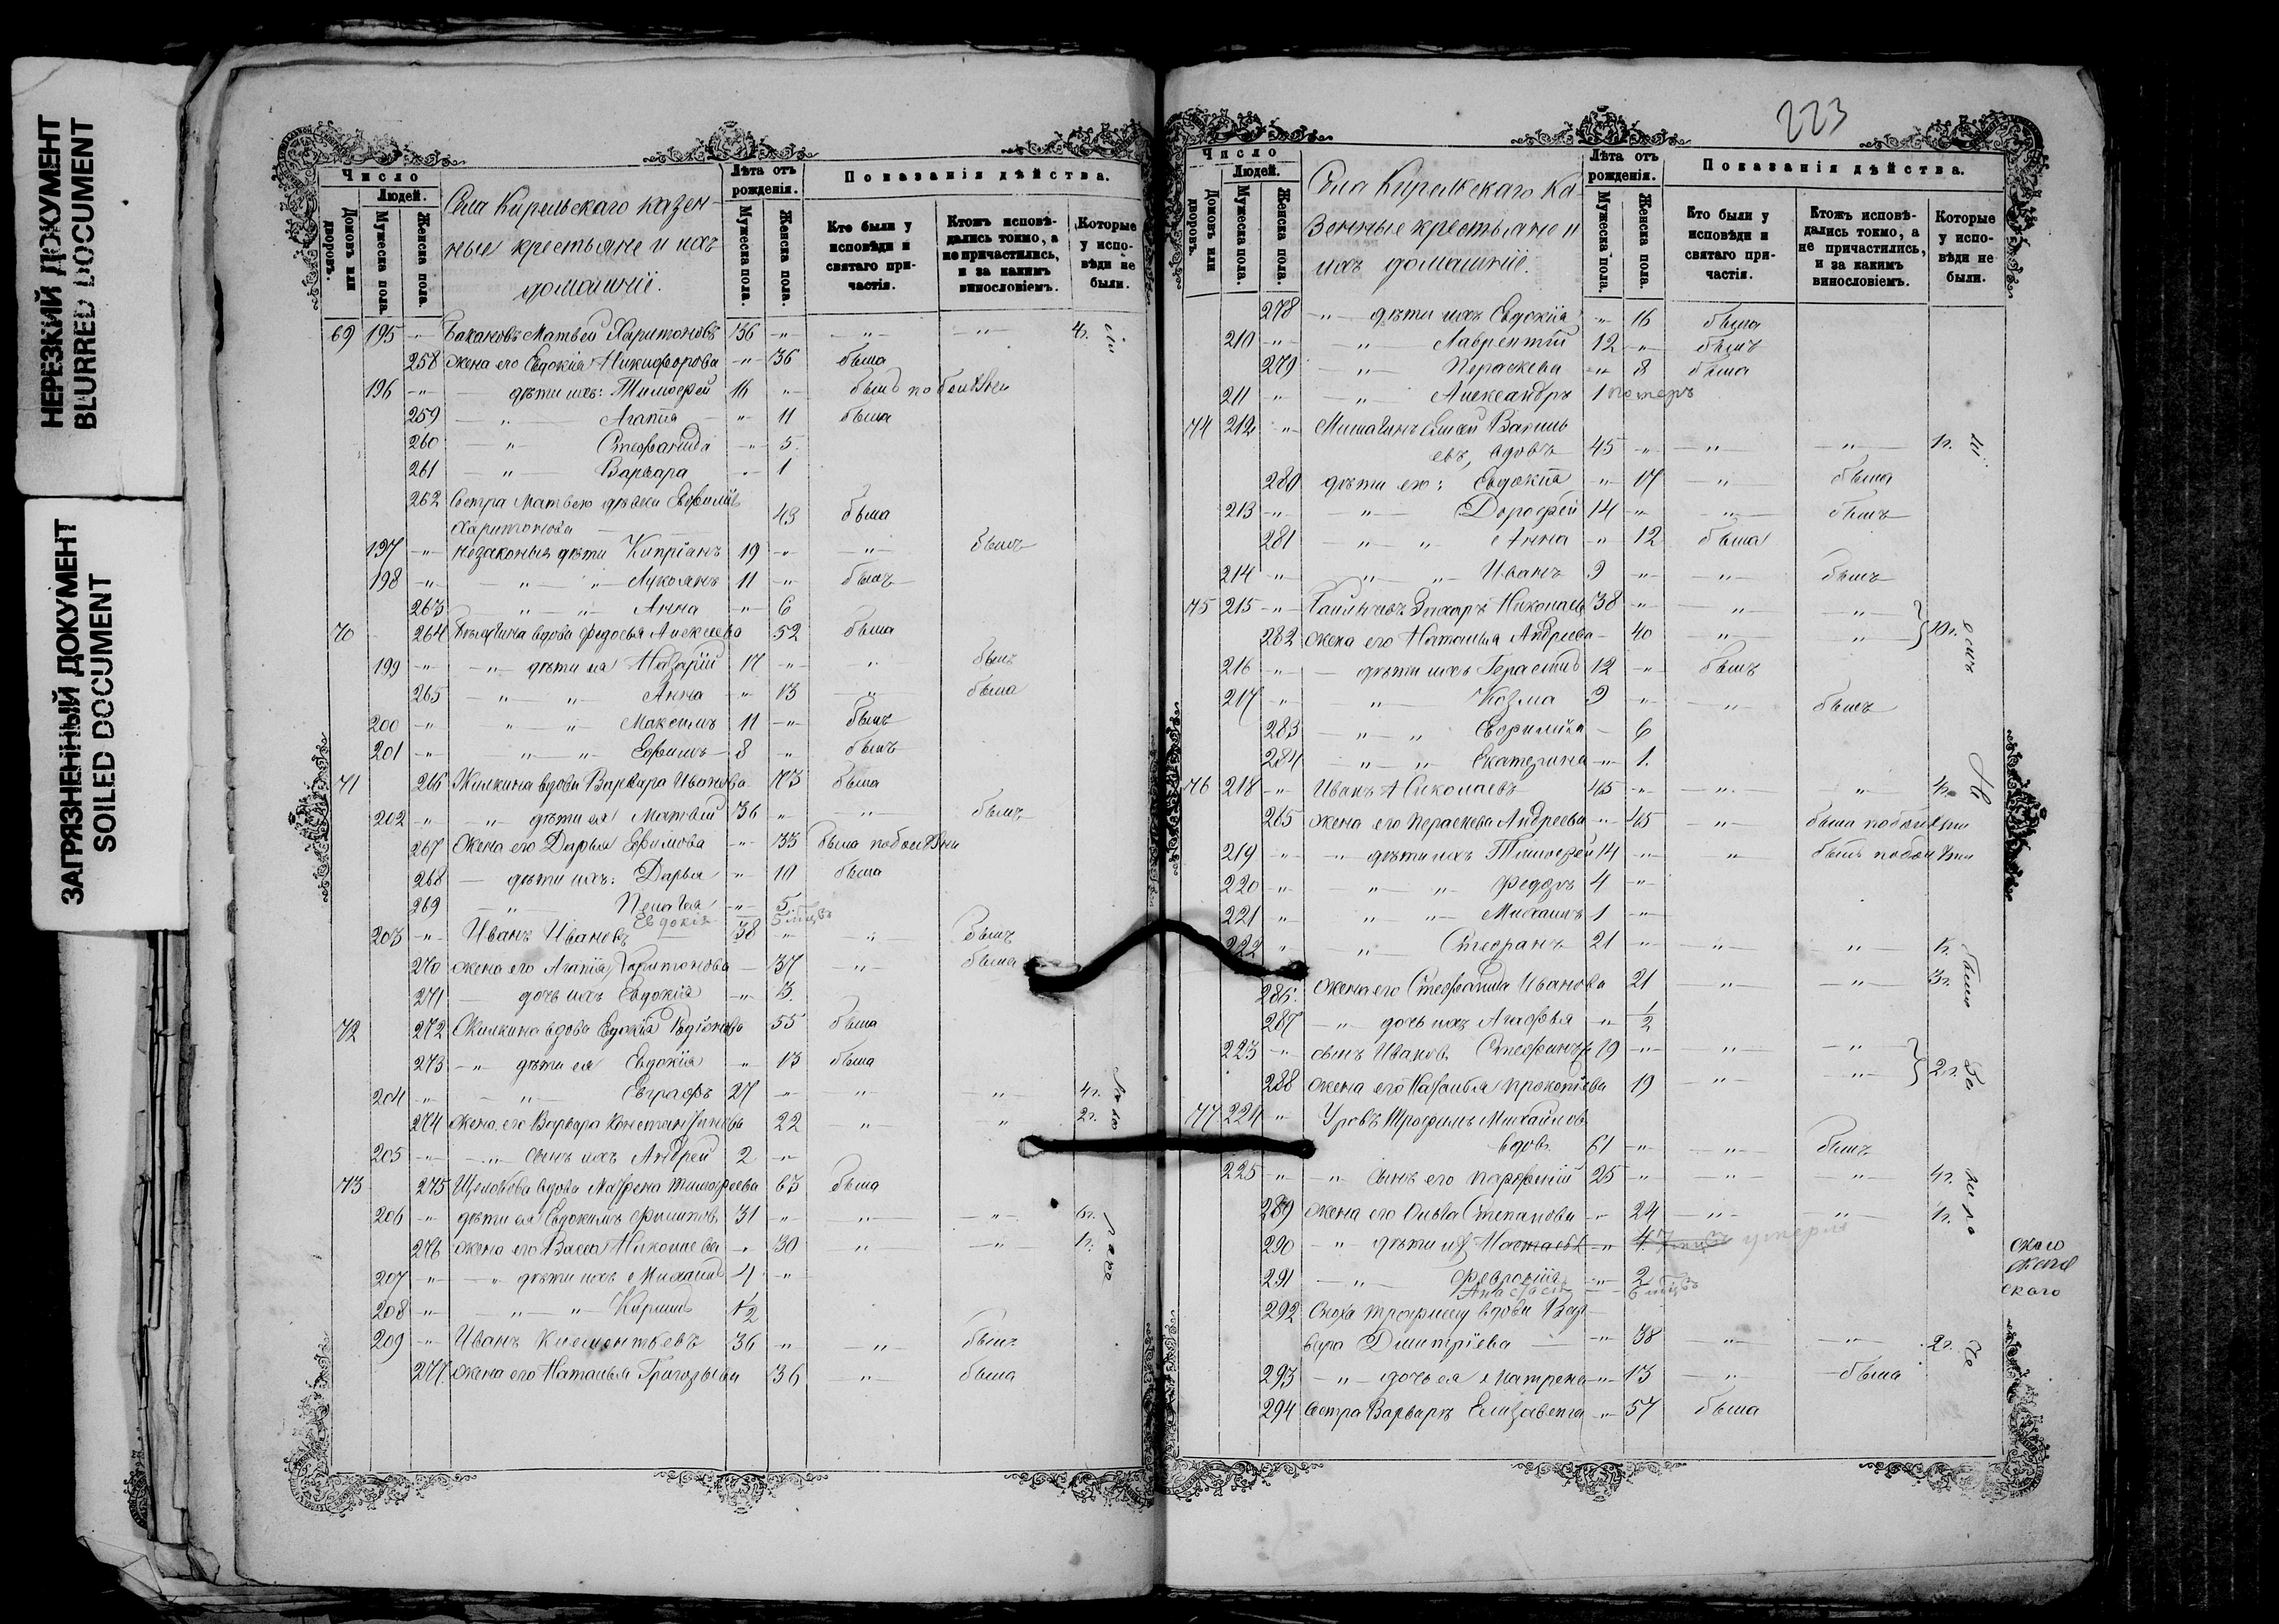 НЕРЕЗКИЙ ДОКУМЕНТ
BLURRED DOCUMENT
ЗАГРЯЗНЕННЫЙ ДОКУМЕНТ
SOILED DOCUMENT
Число
Людей.
Домовъ или дворовъ.
Мужеска пола.
Женска пола.
Села Кирельскаго казен-
ные крестьяне и ихъ
домашніе.
Лѣта отъ рожденія.
Мужеска пола.
Женска пола.
Показанія дѣйства.
Кто были у исповѣди и святаго причастія.
Ктожъ исповѣ-
дались токмо, а
не причастились,
и за какимъ
винословіемъ.
Которые
у испо-
вѣди не
были.
69 195 " Матвей Харитоновъ 36 " " " 4г.
258 жена его Евдокія Никифорова " 36 была
196 " дѣти ихъ: Тимофей 16 " былъ по болѣзни
259 " Агапія " 11 была
260 " Стефанида " 5.
261 " Варвара " 1
262 Сестра Матвею дѣвка Евфимія
Харитонова 43 была
197 " незаконныя дѣти Кипріанъ 19 " " былъ
198 " " " Лукіянъ 11 " былъ
263 " " Анна " 6
70 264 вдова Федосья Алексеева 52 была
199 " " дѣти ея Назарій 17 " " былъ
265 " " Анна " 13 " была
200 " " " Максимъ 11 " былъ
201 " " " Ефимъ 8 " былъ
71 266 Жилкина вдова Варвара Иванова 73 была
202 " " дѣти ея Матвей 36 " " былъ
267 Жена его Дарья Ефимова " 35 была по болѣзни
268 дѣти ихъ: Дарья " 10 была
269 " Пелагея " 5.
Евдокія 5 мцвъ
203 " Иванъ Ивановъ 38 " " былъ
270 жена его Агапія Харитонова 37 " была
271 дочь ихъ Евдокія " 3.
72 272 Жилкина вдова Евдокія Родіонова 55 была
273 " дѣти ея Евдокія " 13 была
204 " " Евграфъ 27 " " " 4г.
274 жена его Варвара Константинова 22 " " 2г.
205 " " сынъ ихъ Андрей 2 "
73 275 Щелокова вдова Матрена Тимофеева 63 была
206 " дѣти ея Евдокимъ Филиповъ 31 " " " 6г.
276 жена его Васса Николаева " 30 " " 1г.
207 " " дѣти ихъ Михаилъ 4 "
208 " " " Кирилъ 1/2
209 " Иванъ Клементьевъ 36 " " былъ
277 жена его Наталья Григорьева 36 " была
223
Число
Людей.
Домовъ или дворовъ.
Мужеска пола.
Женска пола.
Села Кирельскаго Ка-
зенные крестьяне и
ихъ домашніе.
Лѣта отъ рожденія.
Мужеска пола.
Женска пола.
Показанія дѣйства.
Кто были у исповѣди и святаго причастія.
Ктожъ исповѣ-
дались токмо, а
не причастились,
и за какимъ
винословіемъ.
Которые
у испо-
вѣди не
были.
278 " дѣти ихъ Евдокія " 16 была
210 " " Лаврентій 12 " былъ
279 " Пераскева " 8 была
211 " " Александръ 1 померъ
74 212 " Василь
евъ, вдовъ 45 " " " 1г.
280 дѣти его: Евдокія " 17 " была
213 " " Дорофей 14 " " былъ
281 " " Анна " 12 была
214 " " " Иванъ 9 " " былъ
75 215 " Захаръ Николаевъ 38 " " " 10г.
282 жена его Наталья Андреева 40 " "
216 " дѣти ихъ Герасимъ 12 " былъ
217 " " Козма 9 " " былъ
283 " " Евфимія 6
284 " " Екатерина " 1.
76 218 " Иванъ Николаевъ 45 " " " 4г.
285 жена его Пераскева Андреева " 45 " была по болѣзни
219 " " дѣти ихъ Тимофей 14 " " былъ по болѣзни
220 " " " Федоръ 4 "
221 " " " Михаилъ 1 "
222 " " Стефанъ 21 " " " 1г.
286. жена его Стефанида Иванова 21 " " 3г.
287 " дочь ихъ Агафья " 1/2
223 " сынъ Иванов. 19 " " " 2г.
288 жена его Наталья Прокопіева 19 " "
77 224 " Уровъ Трофимъ Михайлов.
вдов. 61 " " былъ
225 " " сынъ его Парфеній 25 " " " 4г.
289 жена его Ольга Степанова " 24 " " 1г.
290 " дѣти их " 4. умерла
291 " Февронія " 2
Анастасія 6 мцвъ
292 Сноха Трофиму вдова Вар
вара Дмитріева " 38 " " 2г.
293 " дочь ея Матрена " 13 " была
294 Сестра Варваръ Елизавета " 57 была